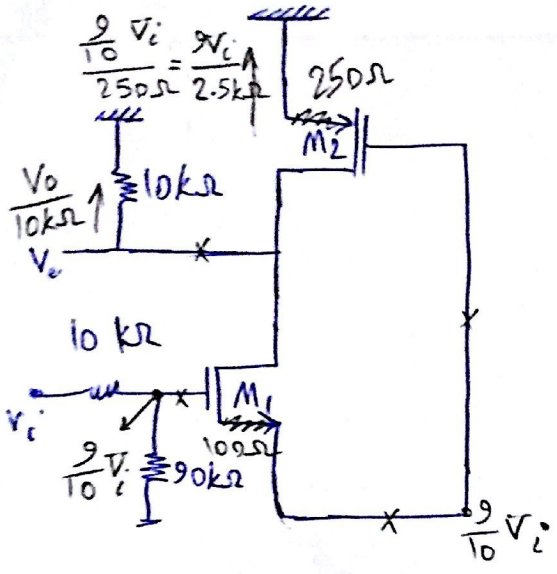 9/10 Vi / 250Ω = 9Vi / 2.5kΩ
250Ω
M2
Vo / 10kΩ
10kΩ
Vo
10 kΩ
M1
Vi
100Ω
9/10 Vi
90kΩ
9/10 Vi